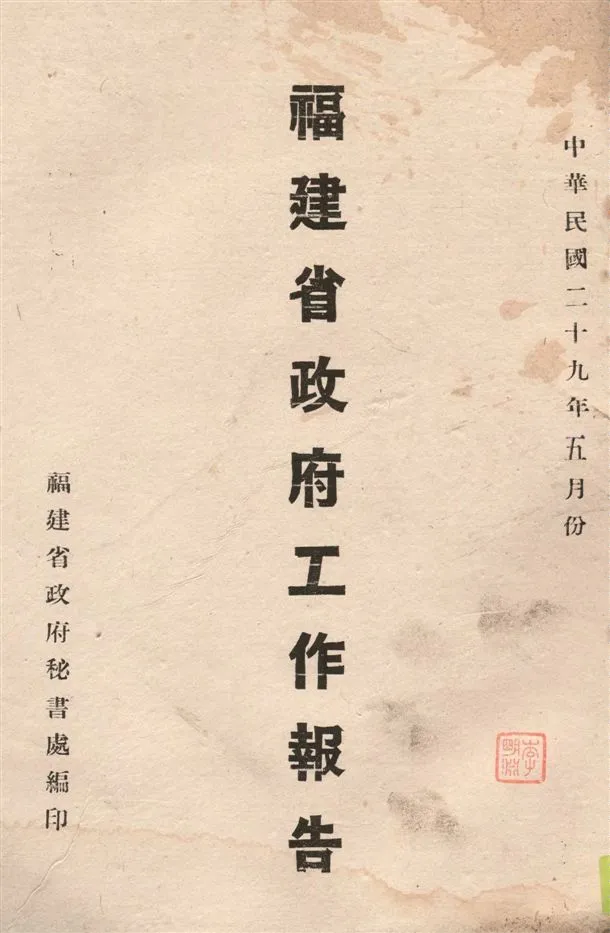 中華民國二十九年五月份
福建省政府工作報告
福建省政府秘書處編印
李明淵